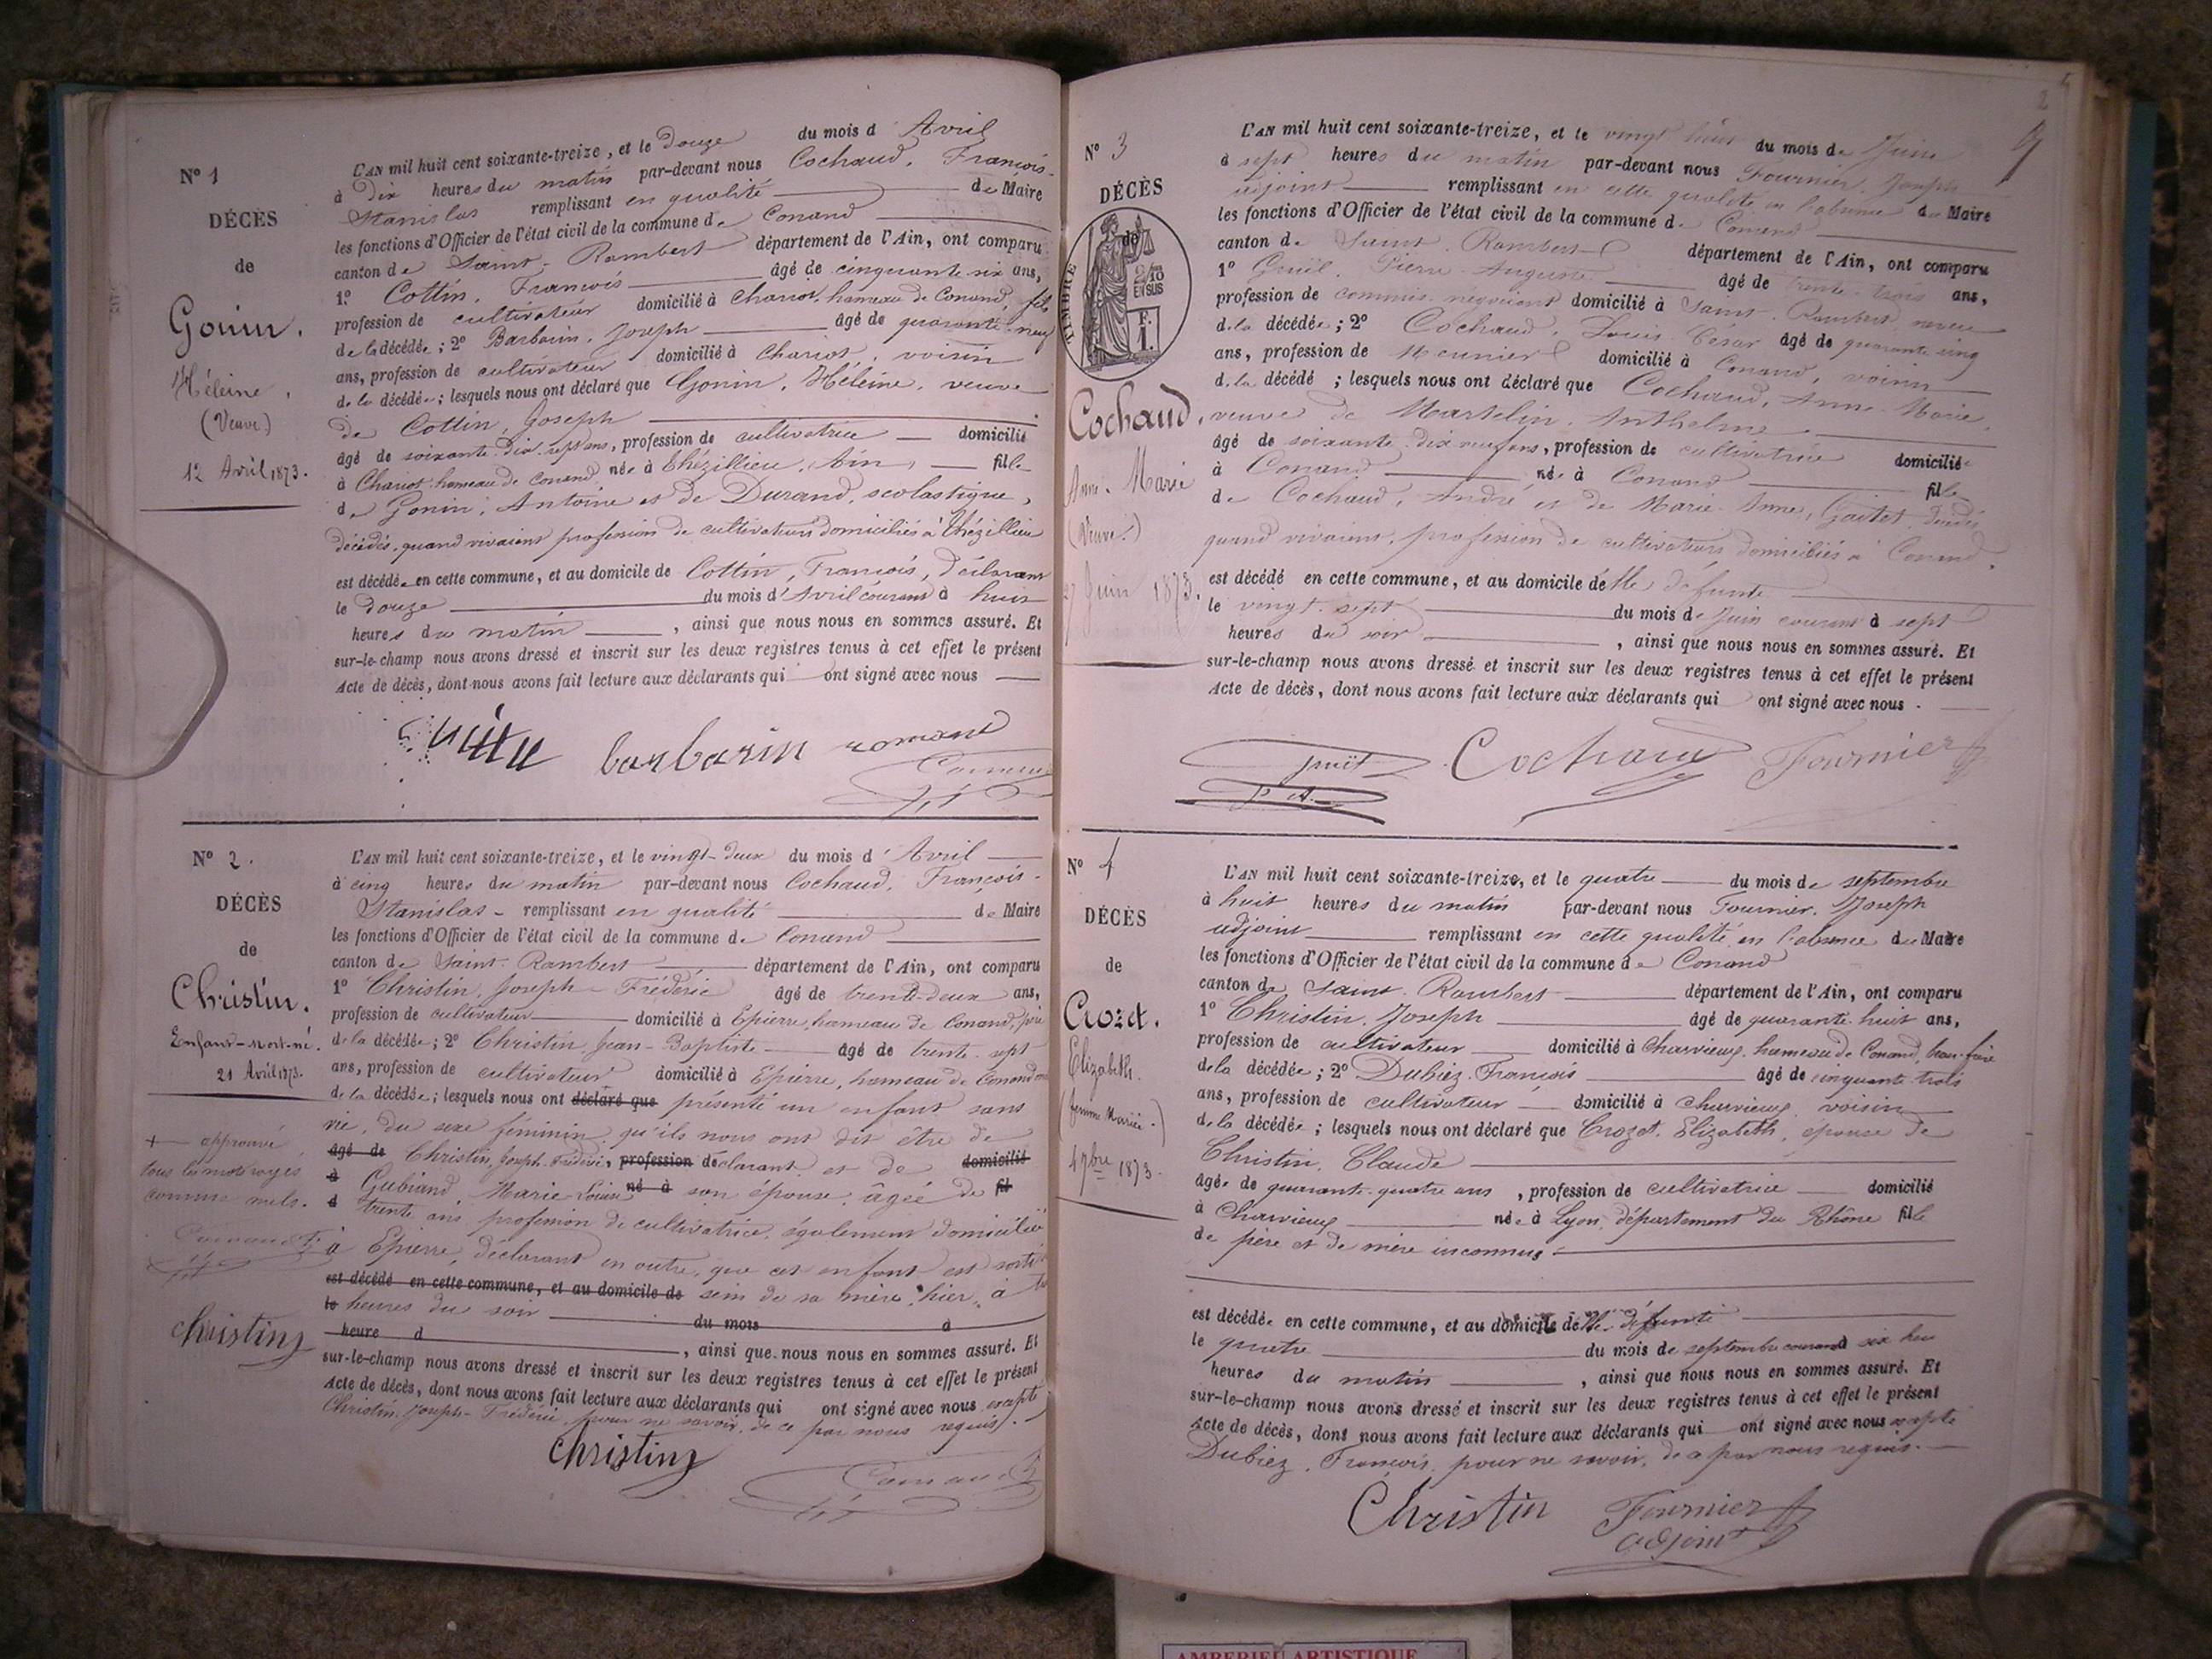 N° 1
DÉCÈS
de
Gonin.
Héleine.
(Veuve)
12 Avril 1873.
L'AN mil huit cent soixante-treize, et le douze du mois d' Avril
à dix heures du matin par-devant nous Cochaud, François-
Stanislas remplissant en qualité de Maire
les fonctions d'Officier de l'état civil de la commune de Conand
canton de Saint-Rambert département de l'Ain, ont comparu
1° Cottin, François âgé de cinquante six ans,
profession de cultivateur domicilié à Chariot, hameau de Conand, fils
de la décédée; 2° Barbarin, Joseph âgé de quarante-neuf
ans, profession de cultivateur domicilié à Chariot, voisin
de la décédée; lesquels nous ont déclaré que Gonin, Héleine, veuve
de Cottin, Joseph
âgé de soixante-dix-sept ans, profession de cultivatrice domicilié
à Chariot hameau de Conand née à Thézillieu, Ain, fille
de Gonin, Antoine et de Durand, scolastique,
décédés, quand vivaient profession de cultivateurs domiciliés à Thézillieu
est décédée en cette commune, et au domicile de Cottin, François, déclarant
le douze du mois d'Avril courant à huit
heures du matin, ainsi que nous nous en sommes assuré. Et
sur-le-champ nous avons dressé et inscrit sur les deux registres tenus à cet effet le présent
Acte de décès, dont nous avons fait lecture aux déclarants qui ont signé avec nous
barbarin
N° 2.
DÉCÈS
de
Christin.
Enfant-mort-né.
21 Avril 1873.
+ approuvé
tous les mots rayés
comme nuls.
christin
L'AN mil huit cent soixante-treize, et le vingt-deux du mois d' Avril
à cinq heures du matin par-devant nous Cochaud, François-
Stanislas - remplissant en qualité de Maire
les fonctions d'Officier de l'état civil de la commune de Conand
canton de Saint-Rambert département de l'Ain, ont comparu
1° Christin, Joseph-Frédéric âgé de trente-deux ans,
profession de cultivateur domicilié à Epierre, hameau de Conand, père
de la décédée; 2° Christin, Jean-Baptiste âgé de trente-sept
ans, profession de cultivateur domicilié à Epierre, hameau de Conand
de la décédée; lesquels nous ont déclaré que présenté un enfant sans
vie, du sexe féminin, qu'ils nous ont dit être de
âgé de Christin, Joseph-Frédéric, profession déclarant et de domicilié
à Gubiand, Marie-Louise né à son épouse, âgée de fil
d trente ans profession de cultivatrice, également domiciliée
à Epierre, déclarant en outre, que cet enfant est sorti
est décédé en cette commune, et au domicile de sein de sa mère, hier, à
le heures du soir du mois à
heure d, ainsi que nous nous en sommes assuré. Et
sur-le-champ nous avons dressé et inscrit sur les deux registres tenus à cet effet le présent
Acte de décès, dont nous avons fait lecture aux déclarants qui ont signé avec nous excepté
Christin, Joseph-Frédéric, pour ne savoir, de ce par nous requis.
christin
N° 3
DÉCÈS
de
TIMBRE
2/10
EN SUS
F.
1.
Cochaud,
Anne-Marie
(Veuve.)
27 Juin 1873.
L'AN mil huit cent soixante-treize, et le vingt huit du mois de Juin
à sept heures du matin par-devant nous Fournier, Joseph
adjoint remplissant en cette qualité en l'absence du Maire
les fonctions d'Officier de l'état civil de la commune de Conand
canton de Saint-Rambert département de l'Ain, ont comparu
1° Gruël, Pierre-Auguste âgé de trente trois ans,
profession de commis négociant domicilié à Saint-Rambert neveu
de la décédée; 2° Cochaud, Louis-César âgé de quarante cinq
ans, profession de Meunier domicilié à Conand, voisin
de la décédé; lesquels nous ont déclaré que Cochaud, Anne-Marie,
veuve de Martelin, Anthelme
âgé de soixante-dix neuf ans, profession de cultivatrice domiciliée
à Conand née à Conand fille
de Cochaud, André et de Marie-Anne, Gaitet, décédés
quand vivaient, profession de cultivateurs domiciliés à Conand,
est décédé en cette commune, et au domicile de Me défunte
le vingt-sept du mois de Juin courant à sept
heures du soir, ainsi que nous nous en sommes assuré. Et
sur-le-champ nous avons dressé et inscrit sur les deux registres tenus à cet effet le présent
Acte de décès, dont nous avons fait lecture aux déclarants qui ont signé avec nous.
Cochaud Fournier
N° 4
DÉCÈS
de
Crozet.
Elizabeth.
(femme Mariée.)
4 7bre 1873.
L'AN mil huit cent soixante-treize, et le quatre du mois de septembre
à huit heures du matin par-devant nous Fournier, Joseph
adjoint remplissant en cette qualité en l'absence du Maire
les fonctions d'Officier de l'état civil de la commune de Conand
canton de Saint-Rambert département de l'Ain, ont comparu
1° Christin, Joseph âgé de quarante-huit ans,
profession de cultivateur domicilié à Charvieux, hameau de Conand, beau-frère
de la décédée; 2° Dubiez, François âgé de cinquante-trois
ans, profession de cultivateur domicilié à Charvieux, voisin
de la décédée; lesquels nous ont déclaré que Crozet, Elizabeth, épouse de
Christin, Claude
âgée de quarante-quatre ans, profession de cultivatrice domicilié
à Charvieux née à Lyon, département du Rhône fille
de père et de mère inconnus
est décédée en cette commune, et au domicile de Me défunte
le quatre du mois de septembre courant à six heu
heures du matin, ainsi que nous nous en sommes assuré. Et
sur-le-champ nous avons dressé et inscrit sur les deux registres tenus à cet effet le présent
Acte de décès, dont nous avons fait lecture aux déclarants qui ont signé avec nous excepté
Dubiez, François, pour ne savoir, de ce par nous requis.
Christin Fournier
adjoint
AMBERIEU ARTISTIQUE